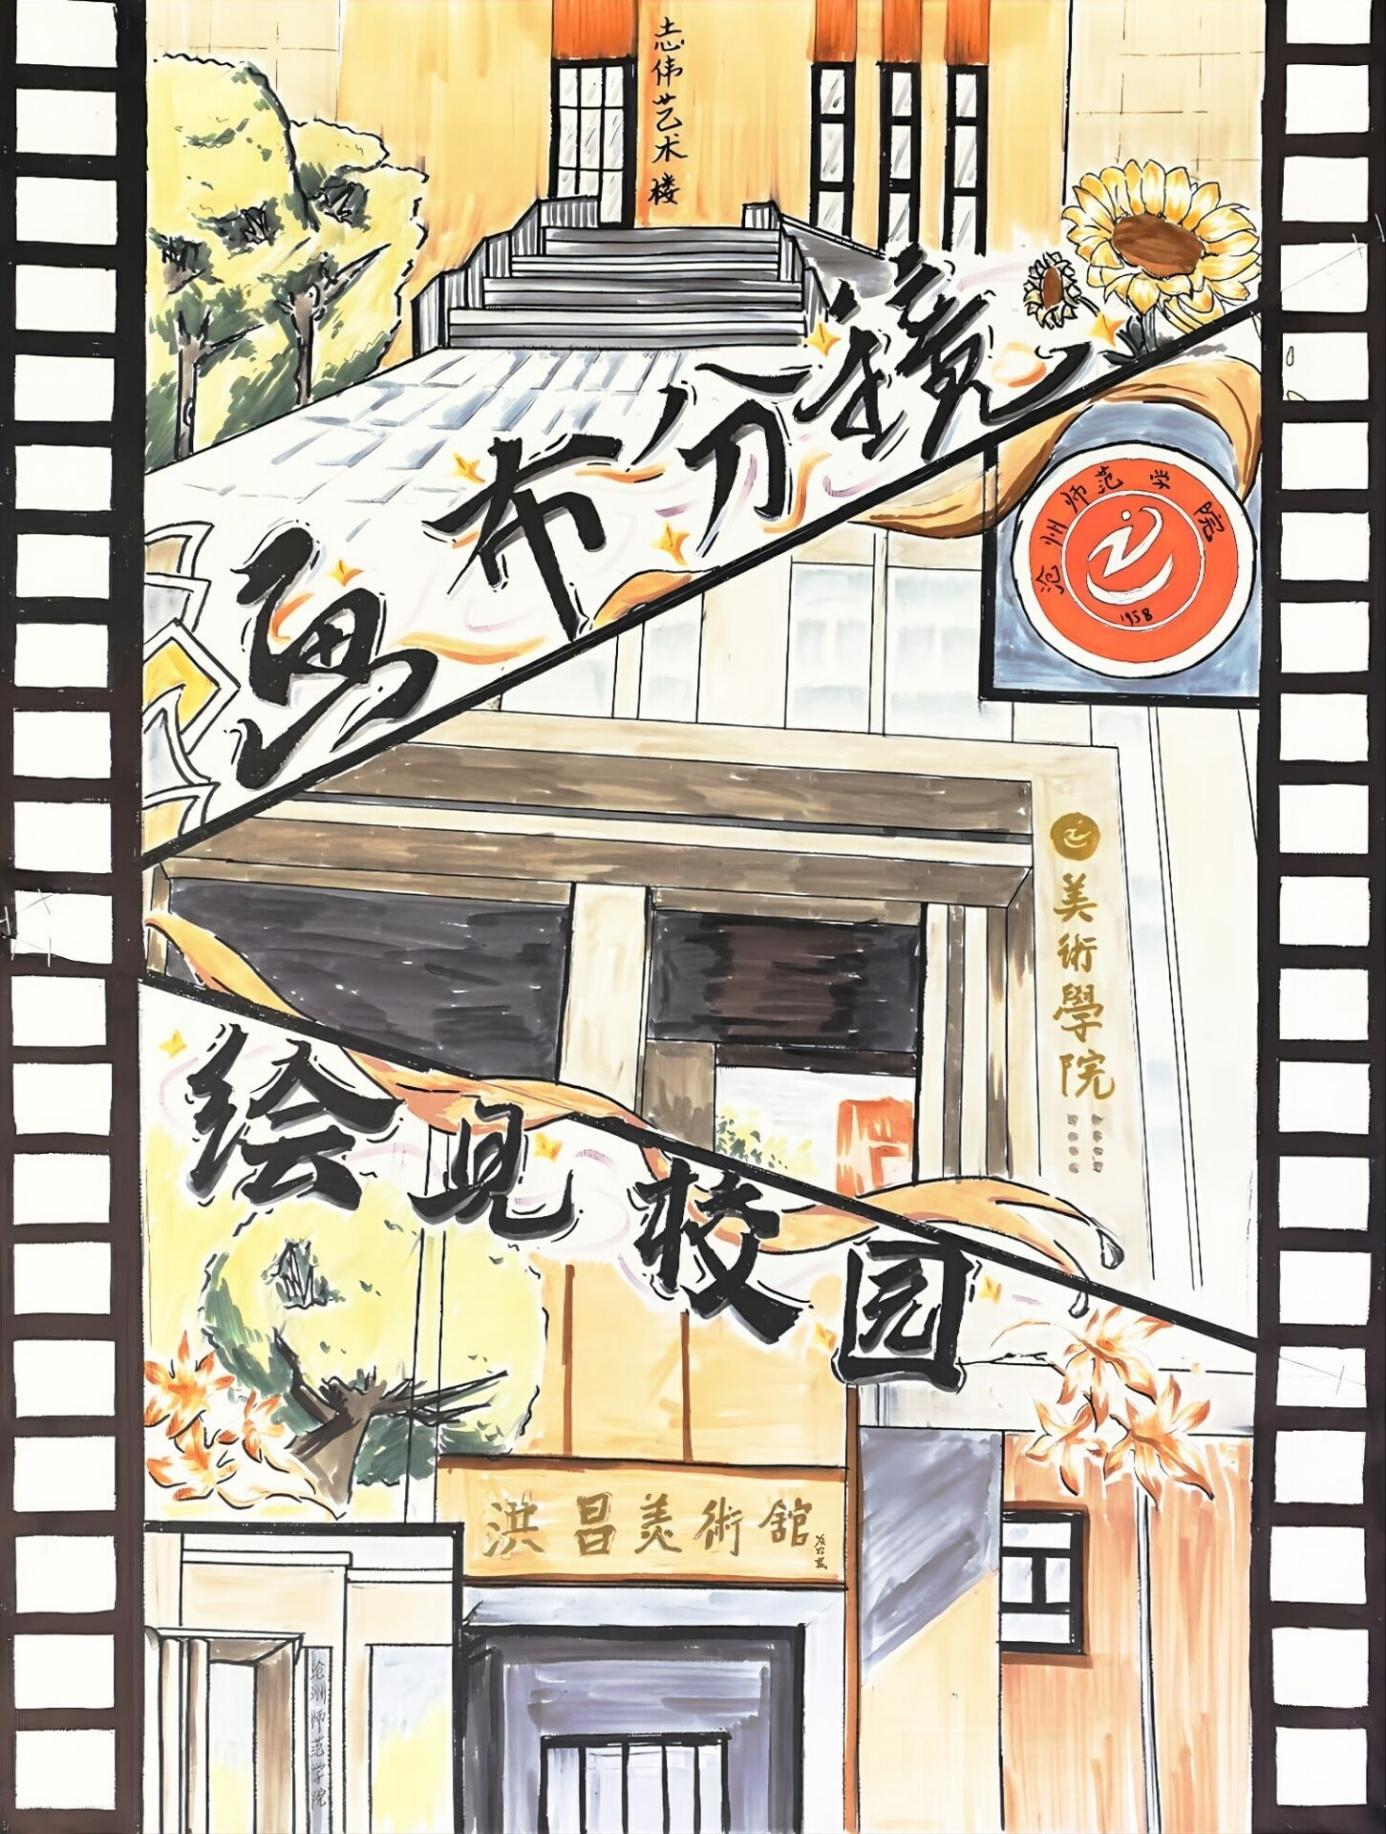 志伟艺术楼
画布分镜
沧州师范学院
1958
美術學院
绘见校园
洪昌美術館
沧州师范学院